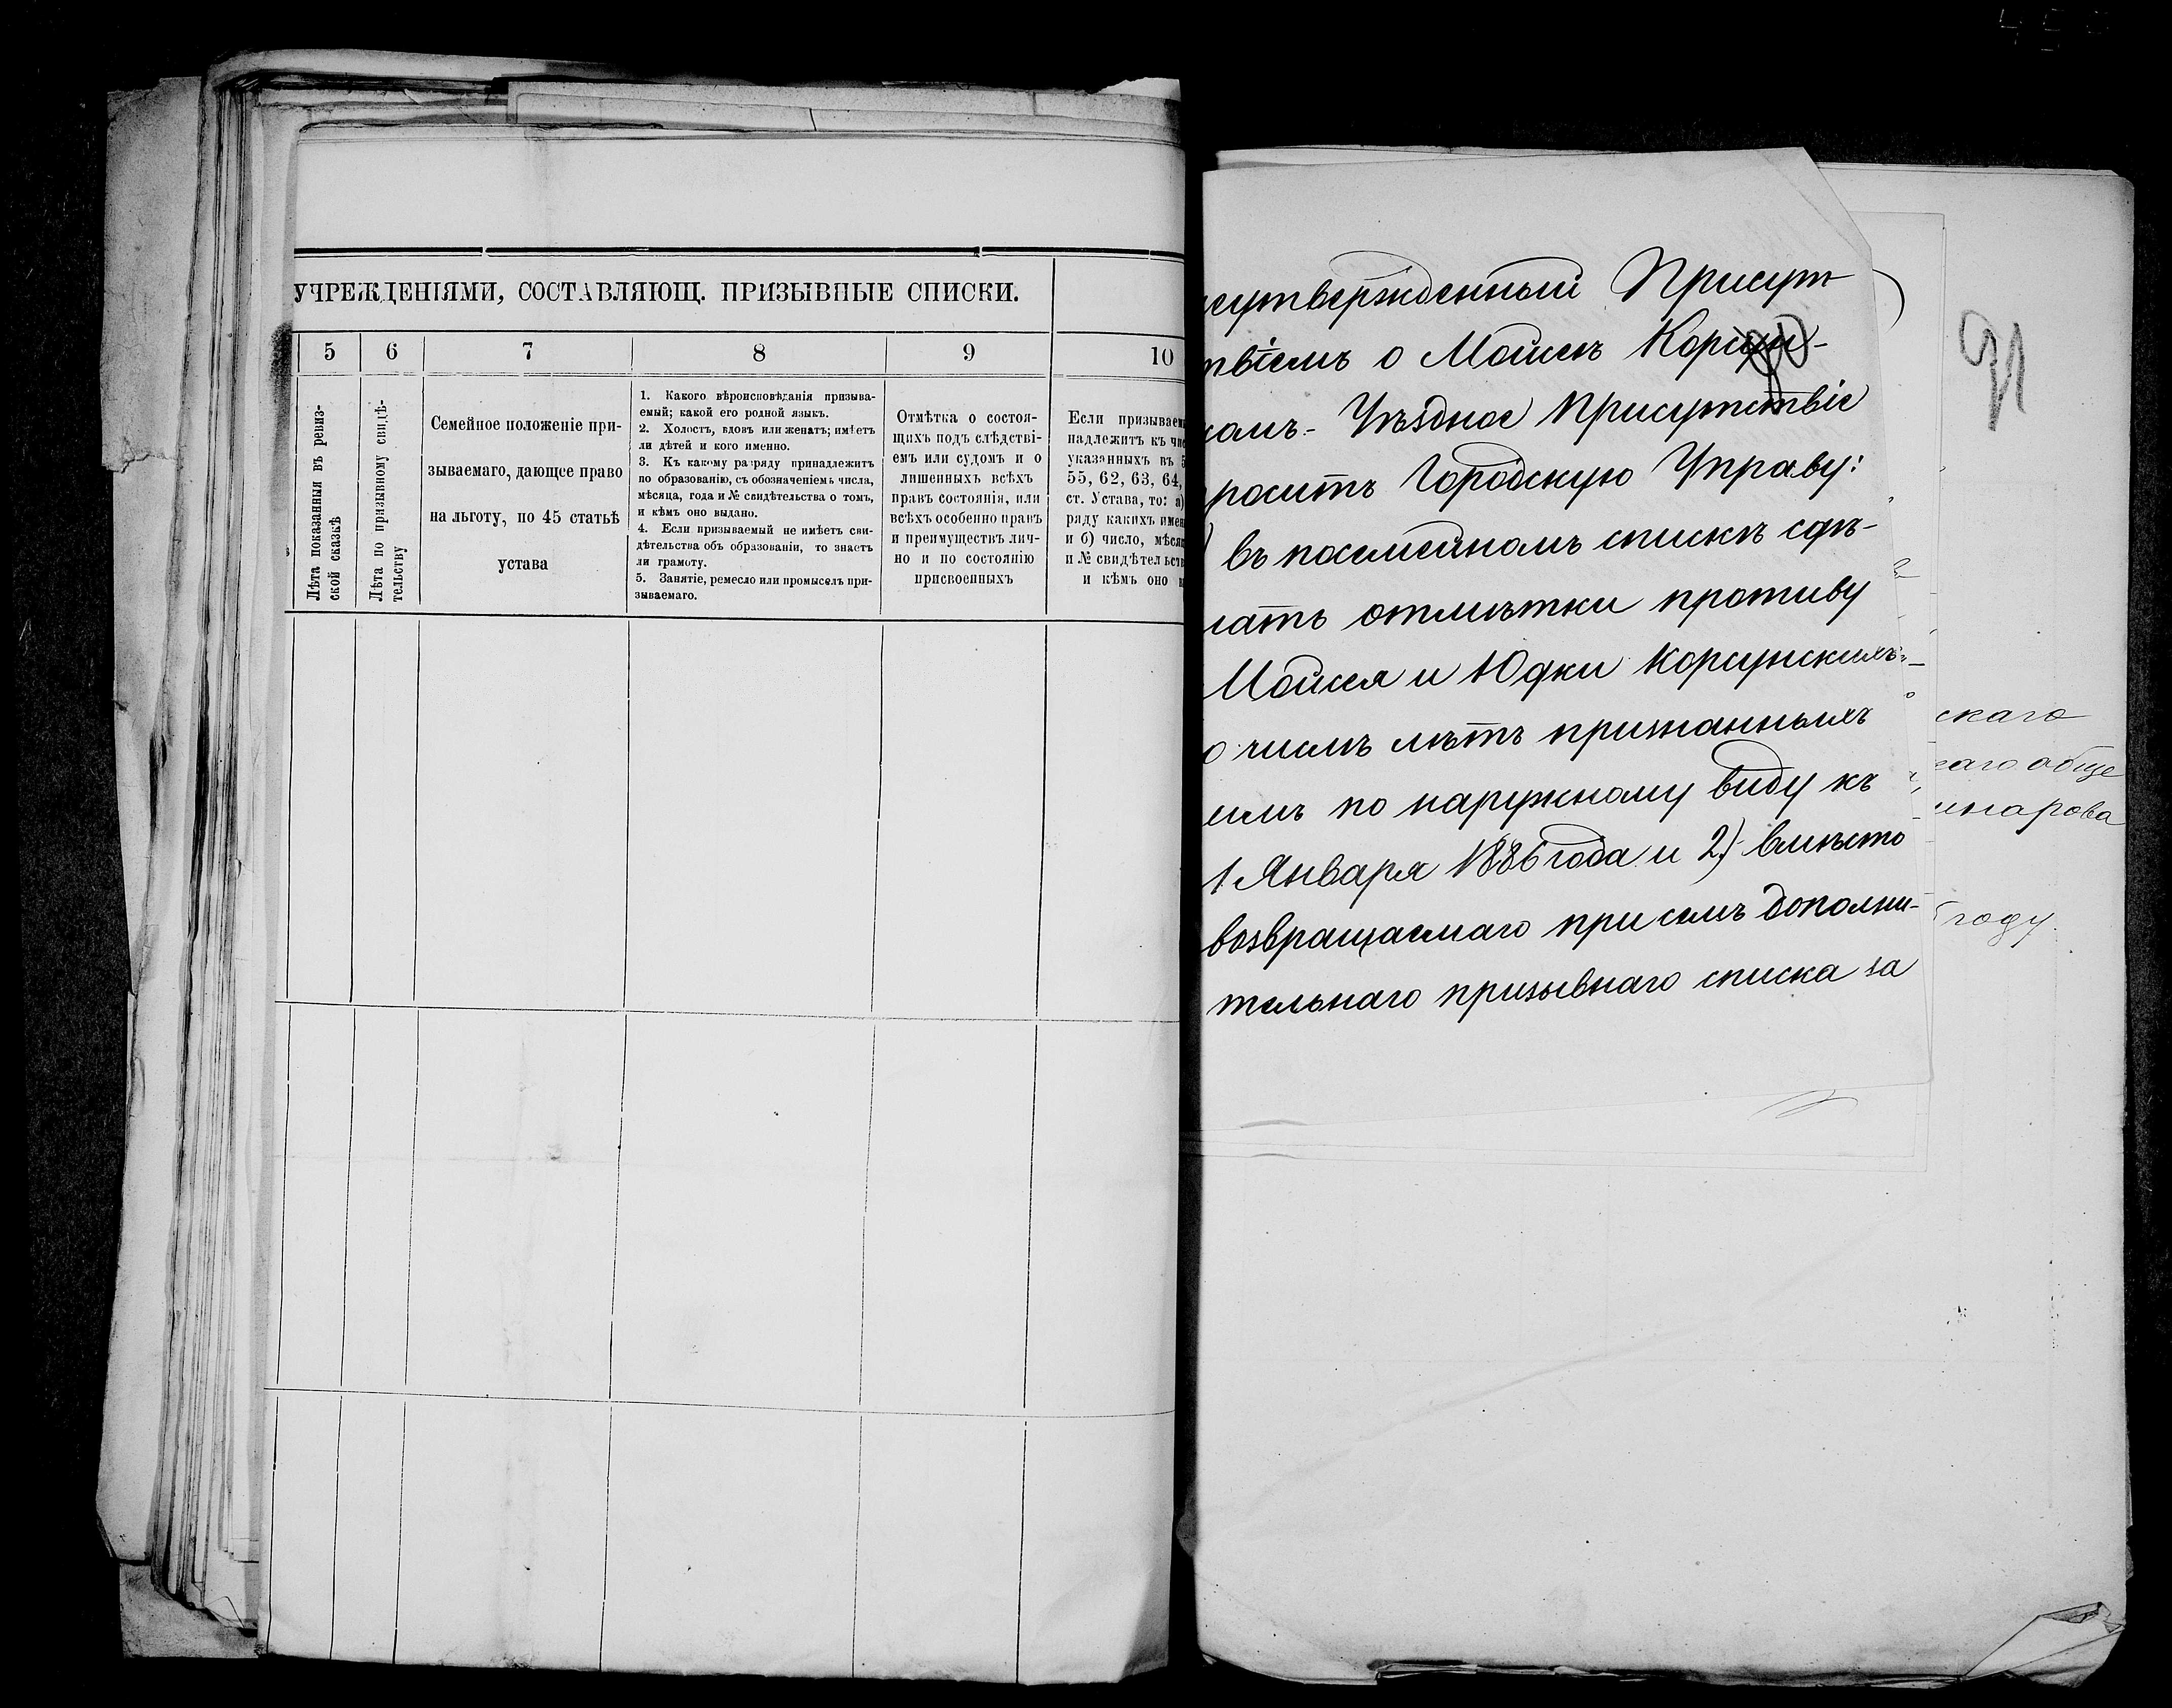 УЧРЕЖДЕНІЯМИ, СОСТАВЛЯЮЩ. ПРИЗЫВНЫЕ СПИСКИ.
5 6 7 8 9 10
Лѣта показанныя въ ревиз-
ской сказкѣ
Лѣта по призывному свидѣ-
тельству
Семейное положеніе при-
зываемаго, дающее право
на льготу, по 45 статьѣ
устава
1. Какого вѣроисповѣданія призыва-
емый; какой его родной языкъ.
2. Холостъ, вдовъ или женатъ; имѣетъ
ли дѣтей и кого именно.
3. Къ какому разряду принадлежитъ
по образованію, съ обозначеніемъ числа,
мѣсяца, года и № свидѣтельства о томъ,
и кѣмъ оно выдано.
4. Если призываемый не имѣетъ сви-
дѣтельства объ образованіи, то знаетъ
ли грамоту.
5. Занятіе, ремесло или промыселъ при-
зываемаго.
Отмѣтка о состоя-
щихъ подъ слѣдствi-
емъ или судомъ и о
лишенныхъ всѣхъ
правъ состоянія, или
всѣхъ особенно правъ
и преимуществъ лич-
но и по состоянію
присвоенныхъ
Если призываем
надлежитъ къ чис
указанныхъ въ 5
55, 62, 63, 64,
ст. Устава, то: а)
ряду какихъ имен
и б) число, мѣсяц
и № свидѣтельств
и кѣмъ оно в
сутвержденный Присут
твіемъ о Мойсеѣ Корсун-
комъ. Уѣздное Присутствіе
роситъ Городскую Управу:
) въ посемейномъ спискѣ сдѣ-
лать отмѣтки противу
Мойсея и Юдки Корсунскихъ
о числѣ лѣтъ признанныхъ
имъ по наружному виду къ
1 Января 1886 года и 2) вмѣсто
возвращаемаго при семъ дополни-
тельнаго призывнаго списка за
91
скаго
каго обще
инарова
году.